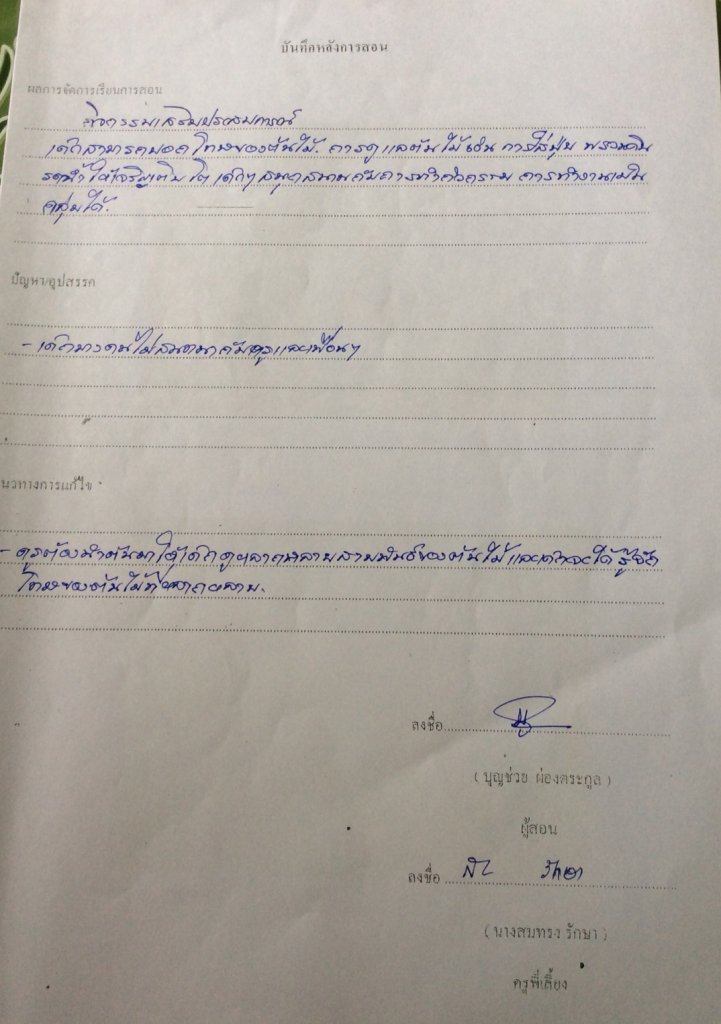 บันทึกหลังการสอน
ผลการจัดการเรียนการสอน
กิจกรรมเสริมประสบการณ์
เด็กสามารถบอกโทษของต้นไม้. การดูแลต้นไม้ เช่น การใส่ปุ๋ย พรวนดิน
รดน้ำ ให้เจริญเติบโต เด็กๆ สนุกสนานกับการทำกิจกรรม การทำงานเป็น
กลุ่มได้.
ปัญหา/อุปสรรค
- เด็กบางคนไม่สนทนากับครูและเพื่อนๆ
นวทางการแก้ไข
- ครูต้องนำต้นมาให้เด็กดูหลากหลายสายพันธ์ของต้นไม้ และเด็กจะได้รู้จัก
โทษของต้นไม้ที่หลากหลาย.
ลงชื่อ
( บุญช่วย ผ่องตระกูล )
ผู้สอน
ลงชื่อ รักษา
( นางสมทรง รักษา )
ครูพี่เลี้ยง